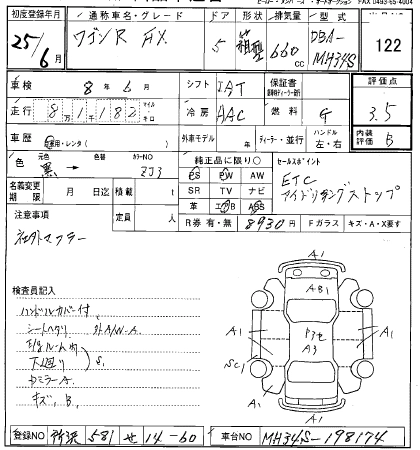 FAX 0493-65-4004
初度登録年月 通称車名・グレード ドア 形状 排気量 型式
25/6 ワゴンR FX 5 箱型 660cc DBA-MH34S 122
車検 8年6月 シフト IAT 保証書 評価点
走行 8万1千182 マイル キロ 冷房 AAC 燃料 G 3.5
車歴 自家用・レンタ 外車モデル ディーラー・並行 ハンドル 左・右 内装評価 B
色 元色 黒 色替 カラーNO ZJ3 純正品に限り○ セールスポイント
PS PW AW ETC
名義変更期限 月 日迄 積載 t SR TV ナビ アイドリングストップ
革 エアB ABS
注意事項 定員 人 R券 有・無 8930円 Fガラス キズ・A・X要す
社外マフラー
A1
検査員記入
ハンドルカバー付
シートヘタリ 外A/W-A
E/gルーム内
下廻り S1
ドミラーA
キズ、B1
AB1
A1 A1
Pマセ
A3
SC1
A1 A1
A1
登録NO 所沢 581 せ 14-60 車台NO MH34S-198174